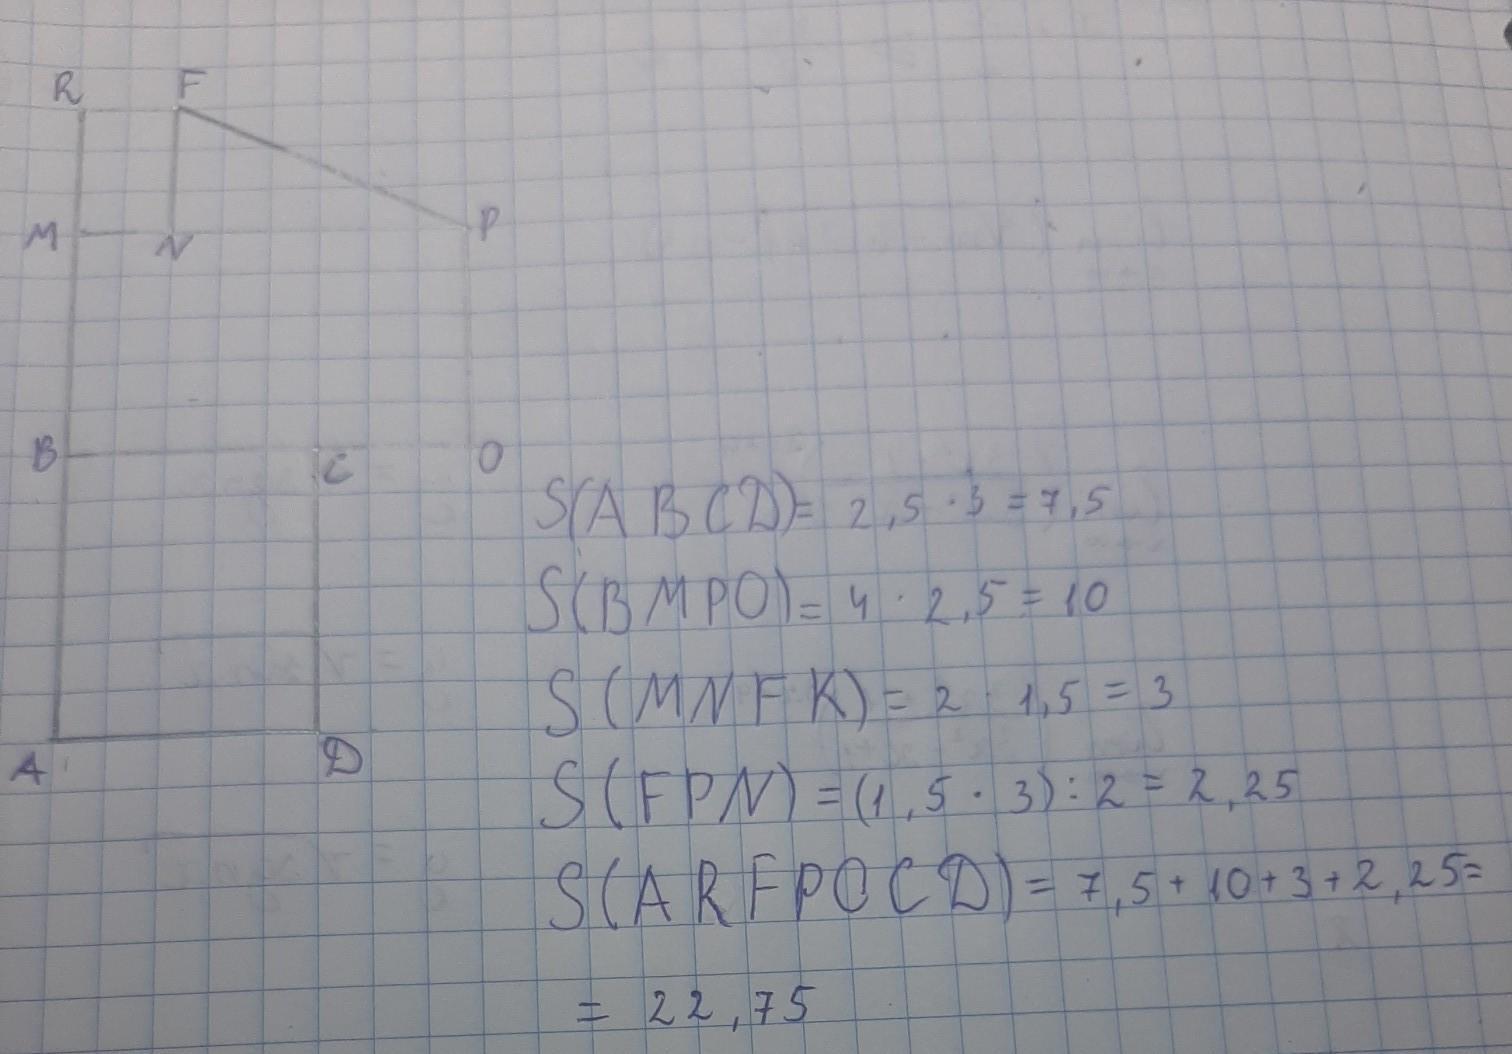 R F
M N P
B C O
S(ABCD)= 2,5 · 3 = 7,5
S(BMPO)= 4 · 2,5 = 10
S(MNFK)= 2 · 1,5 = 3
A D
S(FPN)=(1,5 · 3):2 = 2,25
S(ARFPOCD)= 7,5+10+3+2,25=
= 22,75